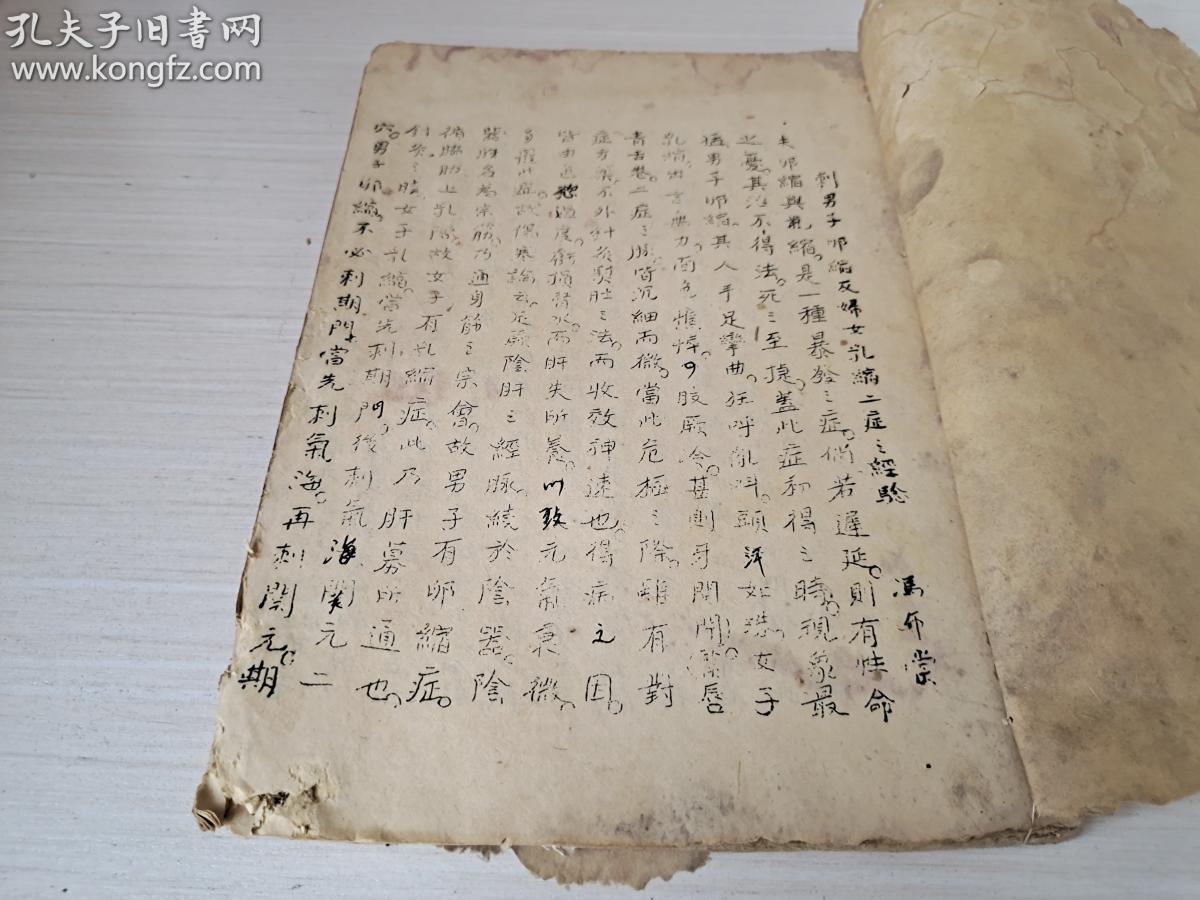 孔夫子旧书网
www.kongfz.com
刺男子卵縮及婦女乳縮二症之經驗 馮
夫卵縮與乳縮。是一種暴發之症。倘若遲延。則有性命
之憂。其治不得法。死之至捷。蓋此症初得之時。現象最
猛。男子卵縮。其人手足攣曲。狂呼亂叫。頭汗如珠。女子
乳縮。出言無力。面色惟悴。四肢厥冷。甚則牙関閉緊。唇
青舌卷。二症之脉。皆沉細而微。當此危極之際。雖有對
症方藥。不外針灸之法。而收效神速也。得病之因。
皆由色慾過度。虧損腎水。而肝失所養。以致元氣衰微。
多罹此症。故傷寒論云。足厥陰肝之經脉。繞於陰器。陰
器 名為宗筋。乃通身筋之宗會。故男子有卵縮症。
脇肋上乳 故女子有乳縮症。此乃肝募所通也。
針灸之時。女子乳縮。當先刺期門。後刺氣海関元二
穴。男子卵縮。不必刺期門。當先刺氣海。再刺関元。期